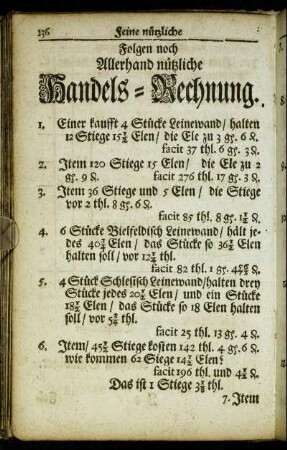 136 Feine nützliche
Folgen noch
Allerhand nützliche
Handels-Rechnung.
1. Einer kaufft 4 Stücke Leinewand/ halten
12 Stiege 15½ Elen/ die Ele zu 3 gs. 6 ₰.
facit 37 thl. 6 gs. 3 ₰.
2. Item 120 Stiege 15 Elen/ die Ele zu 2
gs. 9 ₰. facit 276 thl. 17 gs. 3 ₰.
3. Item 36 Stiege und 5 Elen/ die Stiege
vor 2 thl. 8 gs. 6 ₰.
facit 85 thl. 8 gs. 1½ ₰.
4. 6 Stücke Bielfeldisch Leinewand/ hält je-
des Elen/ das Stücke so Elen
halten soll/ vor thl.
facit 82 thl. 1 gs. ₰.
5. 4 Stück Schlesisch Leinewand/halten drey
Stücke jedes Elen/ und ein Stücke
Elen/ das Stücke so 18 Elen halten
soll/ vor thl.
facit 25 thl. 13 gs. 4 ₰.
6. Item/ Stiege kosten 142 thl. 4 gs. 6 ₰.
wie kommen 62 Stiege Elen?
facit 196 thl. und ₰.
Das ist 1 Stiege thl.
7. Item